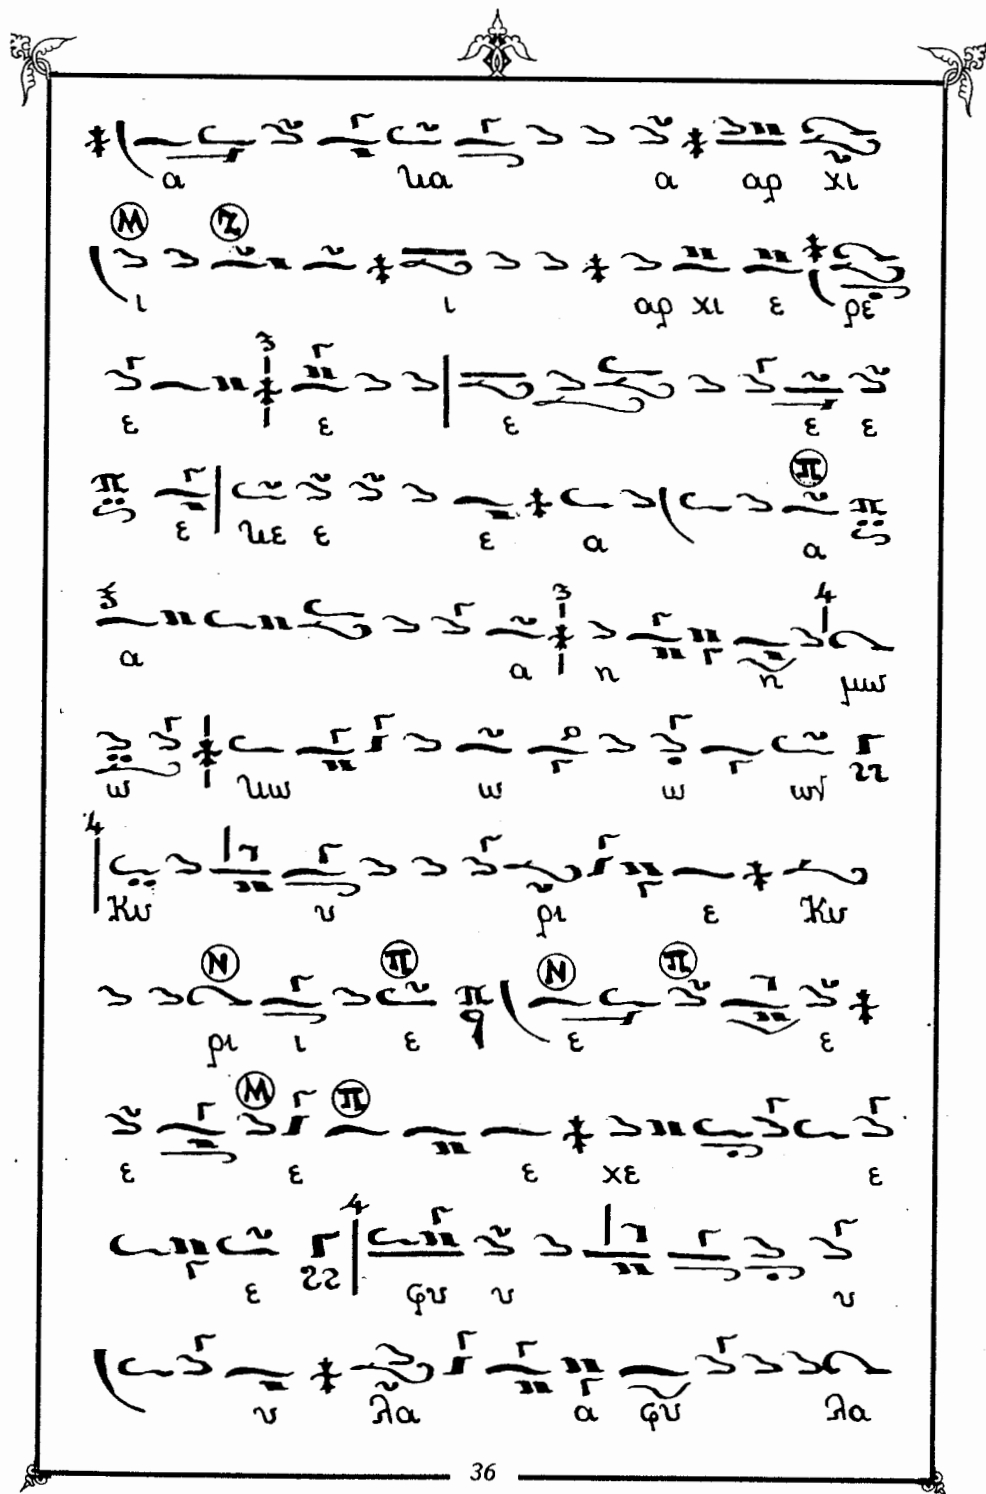 α να α αρ χι
Μ Ζ
ι ι αρ χι ε ρε
3
ε ε ε ε ε
Π
π ε νε ε ε α α π
3 4
α α η η μω
ω νω ω ω ων Γ
4
Κυ υ ρι ε Κυ
Ν Π Ν Π
ρι ι ε π ε ε
Μ Π
ε ε ε χε ε
4
ε Γ φυ υ υ
υ λα α φυ λα
36